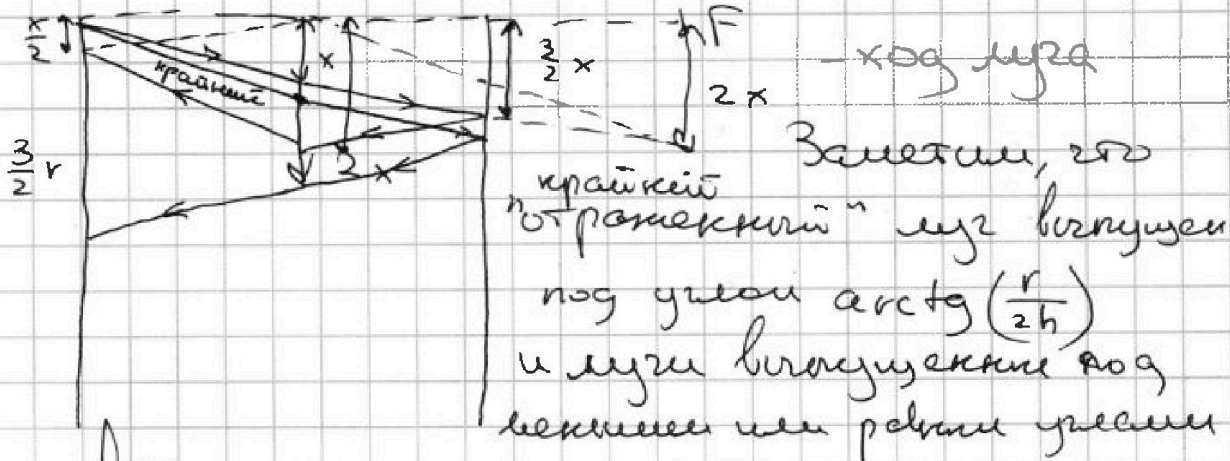 x/2
x
3/2 x
F
2x
- ход луча
крайний
3/2 r
x
Заметим, что
крайний
"отраженный" луч выпущен
под углом arctg (r/2h)
и лучи выпущенные под
меньшими или равными углами